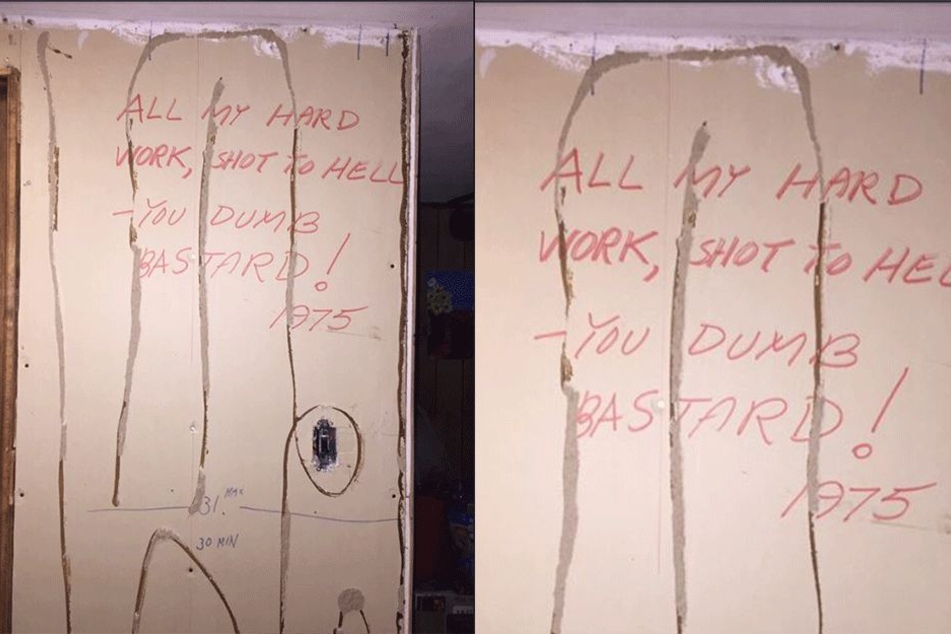 ALL MY HARD
WORK, SHOT TO HELL
-YOU DUMB
BASTARD!
1975
31. MAX
30 MIN
ALL MY HARD
WORK, SHOT TO HEL
-YOU DUMB
BASTARD!
1975